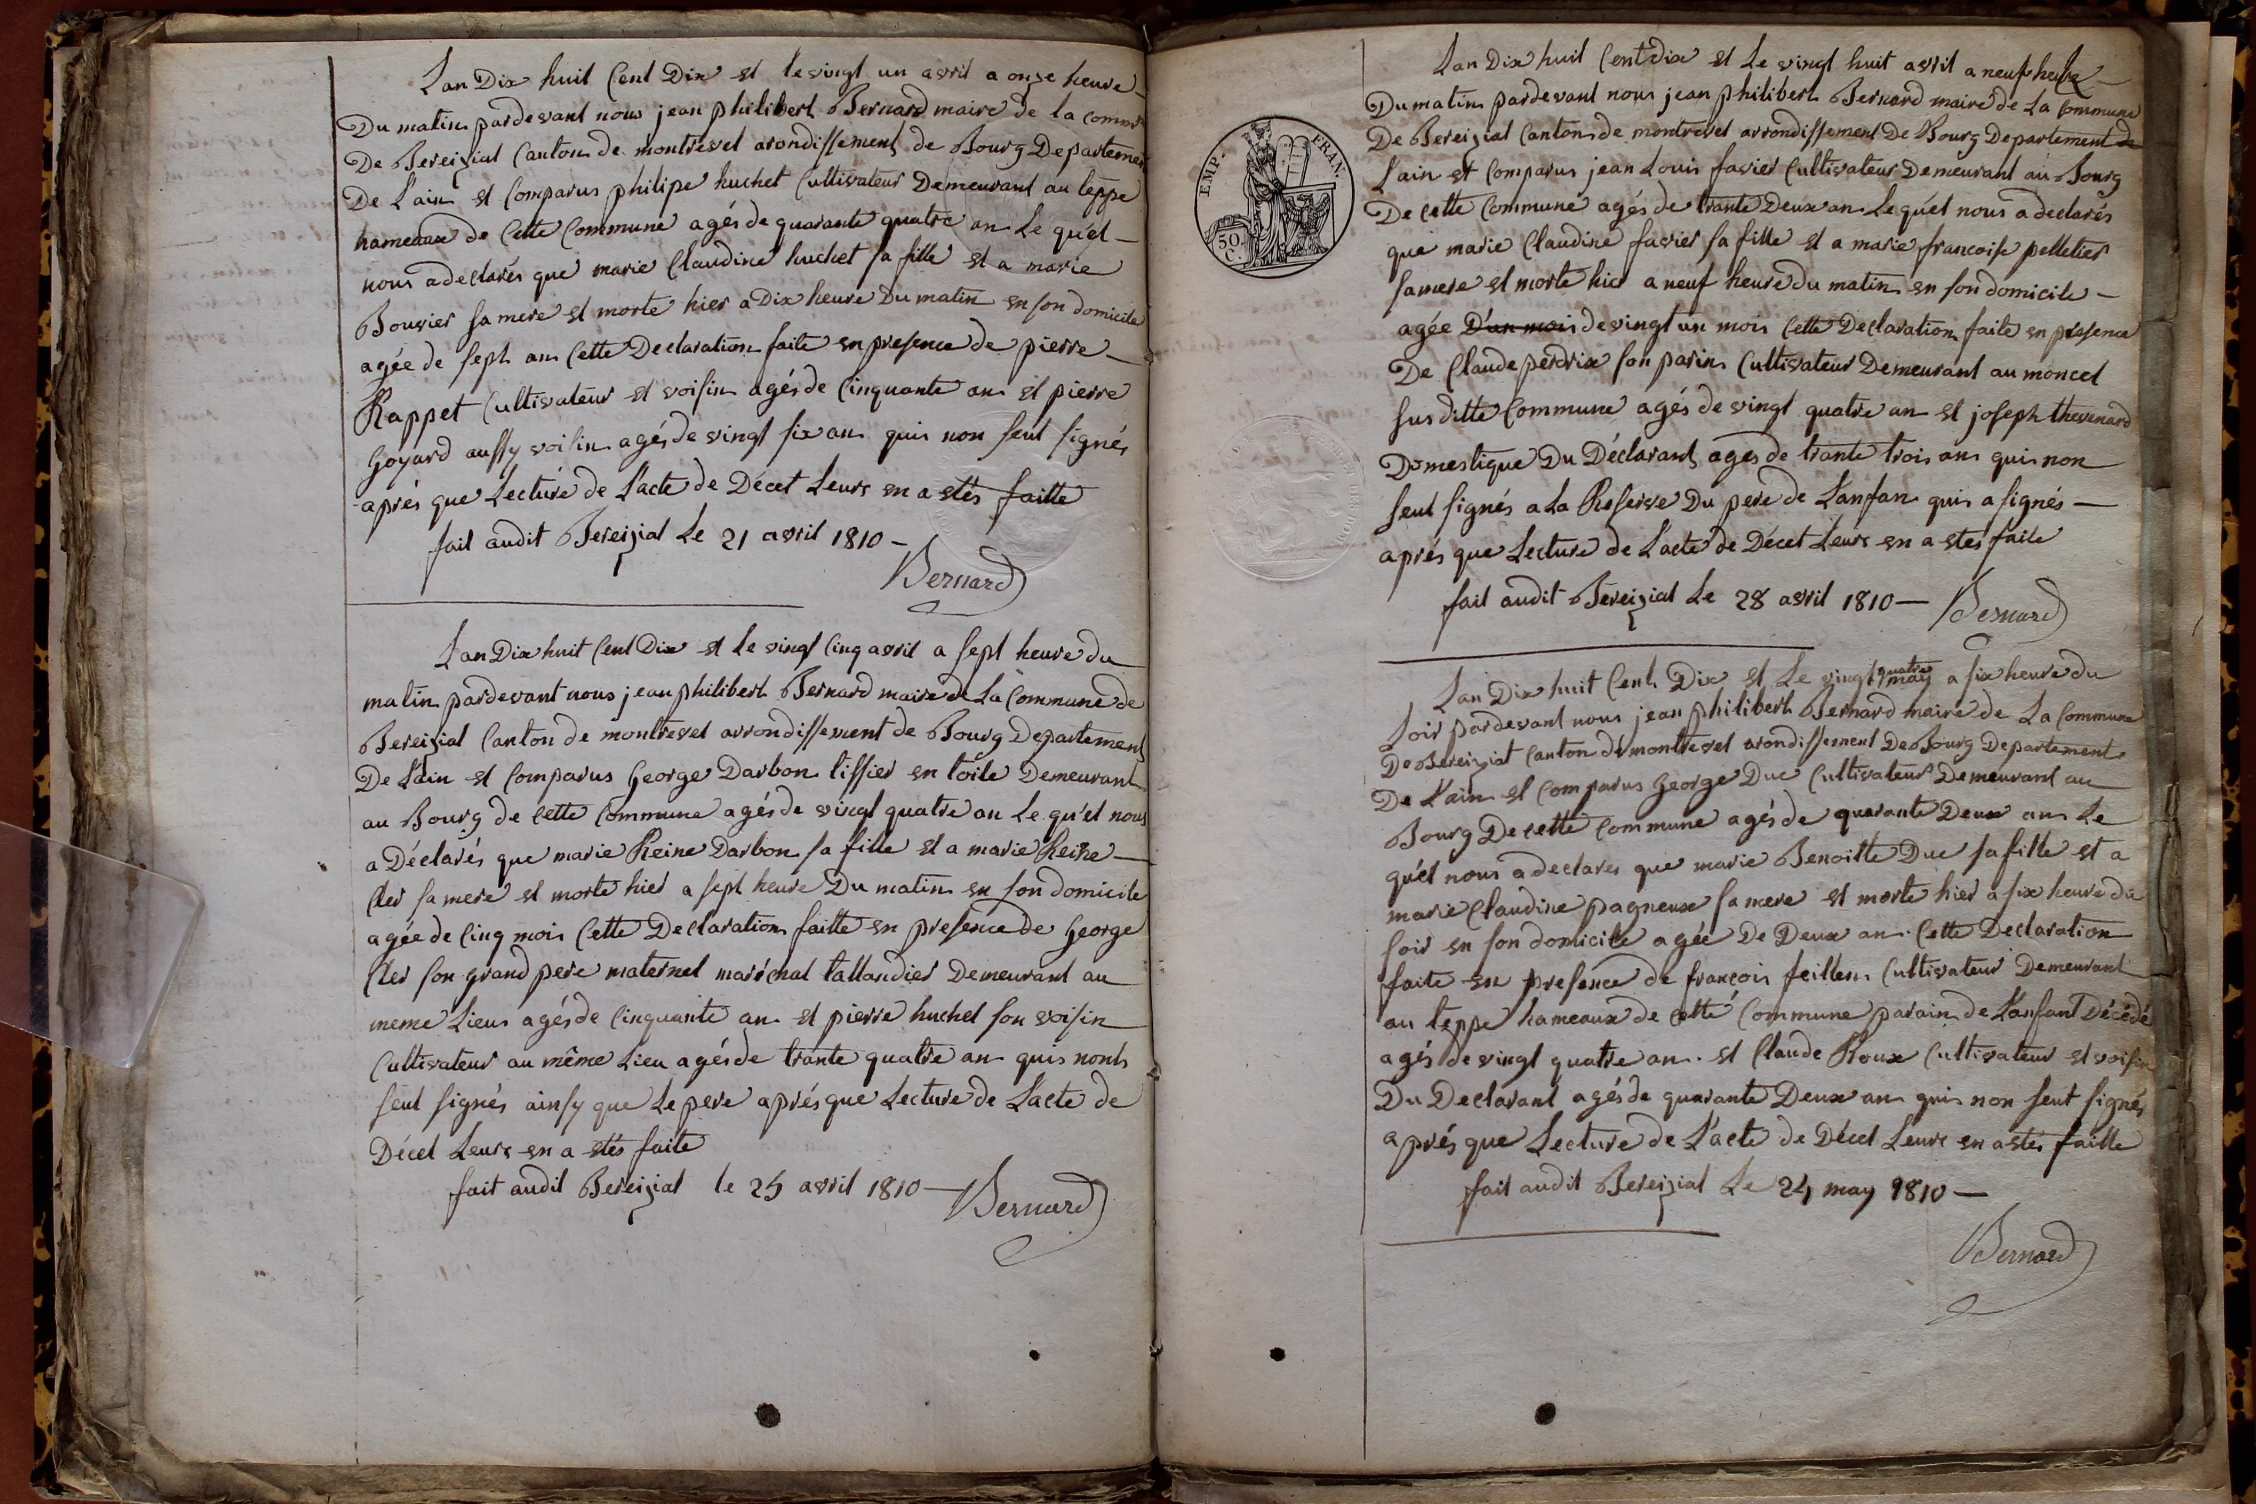 Lan Dix huit Cent Dix et le vingt un avril a onze heure
Du matin pardevant nous jean philibert Bernard maire de la comm
De Bereiziat Canton de montrevel arondissement de Bourg Departemen
De L'ain et Comparus philipe huchet Cultivateur Demeurant au teppe
hameaux de Cette Commune agés de quarante quatre an Le qu'el
nous a declarés que marie Claudine huchet sa fille et a marie
Bouvier sa mere et morte hier a Dix heure Du matin en son domicile
agée de sept an Cette Declaration faite en presence de pierre
Rappet Cultivateur et voisin agés de Cinquante an et pierre
Goyard aussy voisin agés de vingt six an quis non seut signés
aprés que Lecture de L'acte de Décet Leurs en a etés faitte
fait audit Bereiziat Le 21 avril 1810
Bernard
Lan Dix huit Cent Dix et Le vingt Cinq avril a sept heure du
matin pardevant nous jean philibert Bernard maire de La Commune de
Bereiziat Canton de montrevel arrondissement de Bourg Departement
De L'ain et Comparus George Darbon tissier en toile Demeurant
au Bourg de Cette Commune agés de vingt quatre an Le qu'el nous
a Déclarés que marie Reine Darbon sa fille et a marie Reine
Cler sa mere et morte hier a sept heure Du matin en son domicile
agée de Cinq mois Cette Declaration faitte en presence de George
Cler son grand pere maternel maréchal tallandier Demeurant au
meme Lieus agés de Cinquante an et pierre huchet son voisin
Cultivateur au même Lieu agés de trante quatre an quis nont
seut signés ainsy que Le pere aprés que Lecture de L'acte de
Décet Leurs en a etés faite
fait audit Bereiziat le 25 avril 1810
Bernard
EMP. FRAN.
50
C.
Lan Dix huit Cent dix et Le vingt huit avril a neuf heure
Du matin pardevant nous jean philibert Bernard maire de La Commune
De Bereiziat Canton de montrevel arrondissement De Bourg Departement de
L'ain et Comparus jean Louis favier Cultivateur Demeurant au Bourg
De cette Commune agés de trante Deux an Le qu'el nous a declarés
que marie Claudine favier sa fille et a marie francoise pelletier
sa mere et morte hier a neuf heure du matin en son domicile
agée D'un mois de vingt un mois Cette Declaration faite en presence
De Claude perdrix son parin Cultivateur Demeurant au moncel
sus ditte Commune agés de vingt quatre an et joseph thevenard
Domestique Du Déclarant agés de trante trois an quis non
seut signés a La Reserve Du pere de L'anfan quis a signés
aprés que Lecture de L'acte de Décet Leurs en a etés faite
fait audit Bereiziat Le 28 avril 1810
Bernard
Lan Dix huit Cent Dix et Le vingt quatre may a six heure du
soir pardevant nous jean philibert Bernard maire de La Commune
De Bereiziat Canton de montrevel arondissement De Bourg Departement
De L'ain et Comparus George Duc Cultivateur Demeurant au
Bourg De cette Commune agés de quarante Deux an Le
qu'el nous a declarés que marie Benoitte Duc sa fille et a
marie Claudine pagneux sa mere et morte hier a six heure du
soir en son domicile agée De Deux an Cette Declaration
faite en presence de francois feillens Cultivateur Demeurant
au teppe hameaux de Cette Commune parain de L'anfant Décédé
agés de vingt quatre an et Claude Roux Cultivateur et voisin
Du Declarant agés de quarante Deux an quis non seut signés
aprés que Lecture de L'acte de Décet Leurs en a etés faitte
fait audit Bereiziat Le 24 may 1810
Bernard